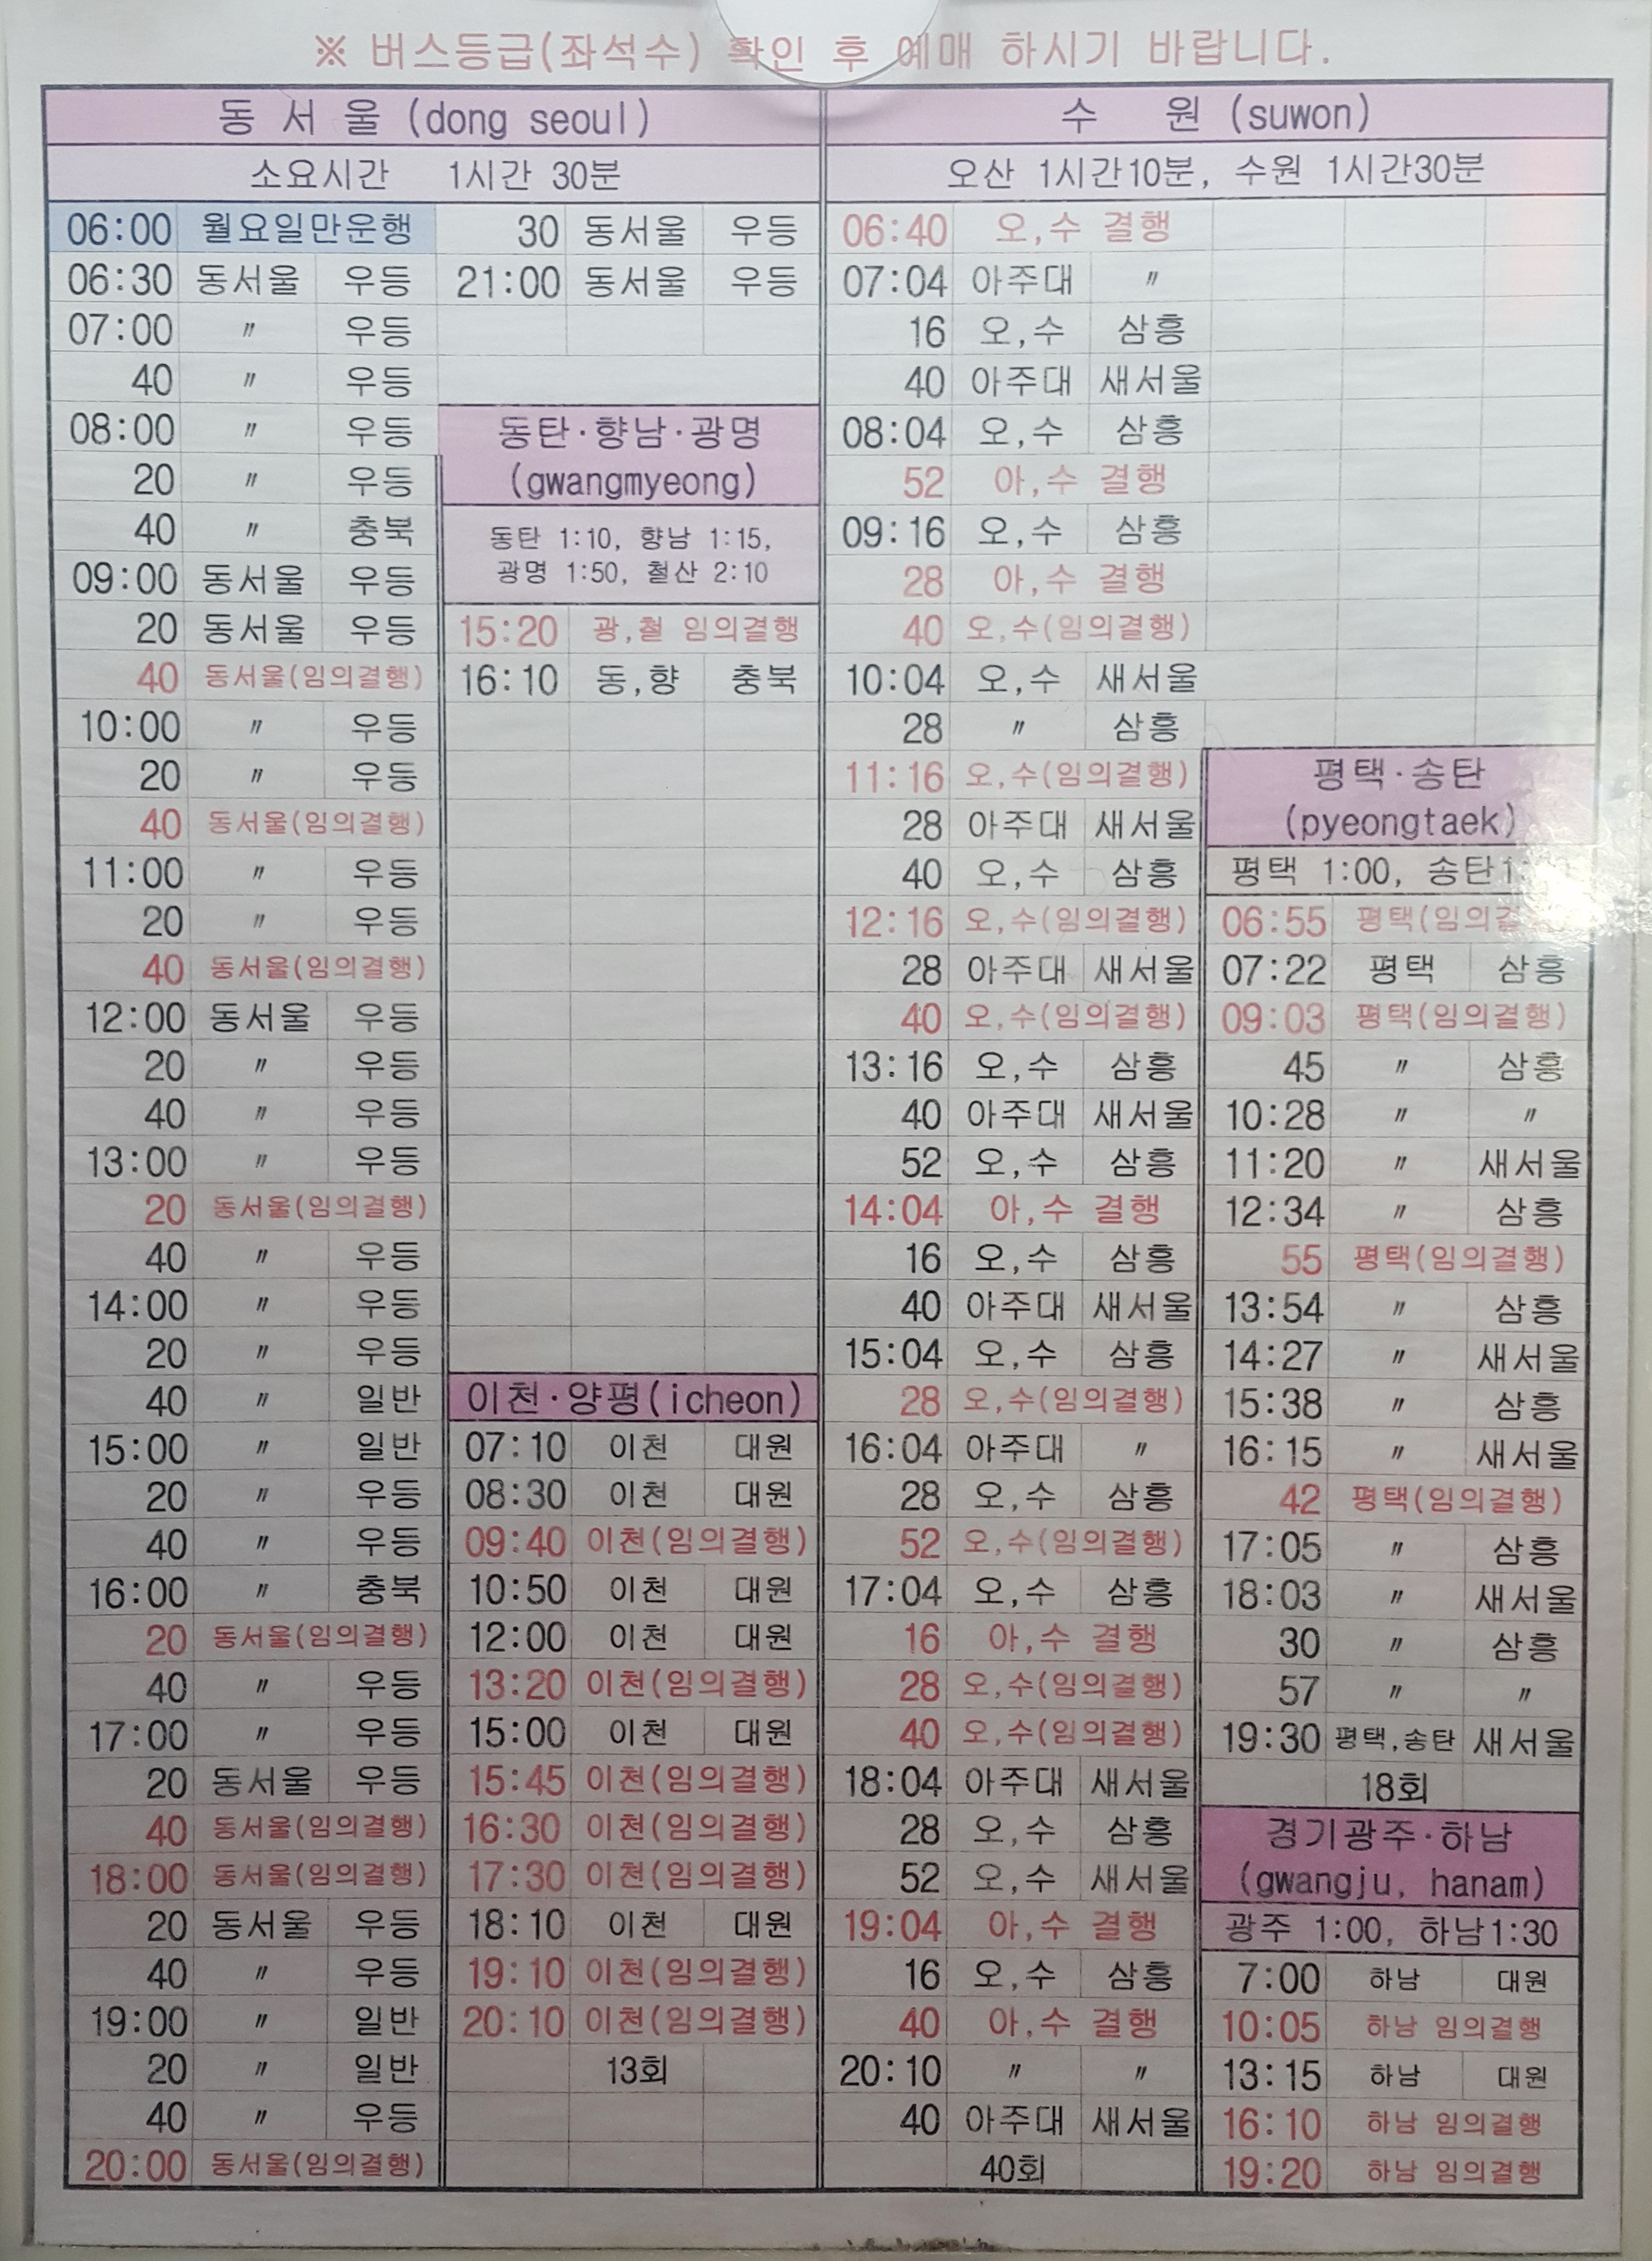 ※ 버스등급(좌석수) 확인 후 예매 하시기 바랍니다.
동 서 울 (dong seoul)
소요시간 1시간 30분
06:00 월요일만운행
06:30 동서울 우등
07:00 〃 우등
40 〃 우등
08:00 〃 우등
20 〃 우등
40 〃 충북
09:00 동서울 우등
20 동서울 우등
40 동서울(임의결행)
10:00 〃 우등
20 〃 우등
40 동서울(임의결행)
11:00 〃 우등
20 〃 우등
40 동서울(임의결행)
12:00 동서울 우등
20 〃 우등
40 〃 우등
13:00 〃 우등
20 동서울(임의결행)
40 〃 우등
14:00 〃 우등
20 〃 우등
40 〃 일반
15:00 〃 일반
20 〃 우등
40 〃 우등
16:00 〃 충북
20 동서울(임의결행)
40 〃 우등
17:00 〃 우등
20 동서울 우등
40 동서울(임의결행)
18:00 동서울(임의결행)
20 동서울 우등
40 〃 우등
19:00 〃 일반
20 〃 일반
40 〃 우등
20:00 동서울(임의결행)
30 동서울 우등
21:00 동서울 우등
동탄·향남·광명
(gwangmyeong)
동탄 1:10, 향남 1:15,
광명 1:50, 철산 2:10
15:20 광,철 임의결행
16:10 동,향 충북
이천·양평(icheon)
07:10 이천 대원
08:30 이천 대원
09:40 이천(임의결행)
10:50 이천 대원
12:00 이천 대원
13:20 이천(임의결행)
15:00 이천 대원
15:45 이천(임의결행)
16:30 이천(임의결행)
17:30 이천(임의결행)
18:10 이천 대원
19:10 이천(임의결행)
20:10 이천(임의결행)
13회
수 원 (suwon)
오산 1시간10분, 수원 1시간30분
06:40 오,수 결행
07:04 아주대 〃
16 오,수 삼흥
40 아주대 새서울
08:04 오,수 삼흥
52 아,수 결행
09:16 오,수 삼흥
28 아,수 결행
40 오,수(임의결행)
10:04 오,수 새서울
28 〃 삼흥
11:16 오,수(임의결행)
28 아주대 새서울
40 오,수 삼흥
12:16 오,수(임의결행)
28 아주대 새서울
40 오,수(임의결행)
13:16 오,수 삼흥
40 아주대 새서울
52 오,수 삼흥
14:04 아,수 결행
16 오,수 삼흥
40 아주대 새서울
15:04 오,수 삼흥
28 오,수(임의결행)
16:04 아주대 〃
28 오,수 삼흥
52 오,수(임의결행)
17:04 오,수 삼흥
16 아,수 결행
28 오,수(임의결행)
40 오,수(임의결행)
18:04 아주대 새서울
28 오,수 삼흥
52 오,수 새서울
19:04 아,수 결행
16 오,수 삼흥
40 아,수 결행
20:10 〃 〃
40 아주대 새서울
40회
평택·송탄
(pyeongtaek)
평택 1:00, 송탄
06:55
07:22 평택 삼흥
09:03 평택(임의결행)
45 〃 삼흥
10:28 〃 〃
11:20 〃 새서울
12:34 〃 삼흥
55 평택(임의결행)
13:54 〃 삼흥
14:27 〃 새서울
15:38 〃 삼흥
16:15 〃 새서울
42 평택(임의결행)
17:05 〃 삼흥
18:03 〃 새서울
30 〃 삼흥
57 〃 〃
19:30 평택,송탄 새서울
18회
경기광주·하남
(gwangju, hanam)
광주 1:00, 하남1:30
7:00 하남 대원
10:05 하남 임의결행
13:15 하남 대원
16:10 하남 임의결행
19:20 하남 임의결행